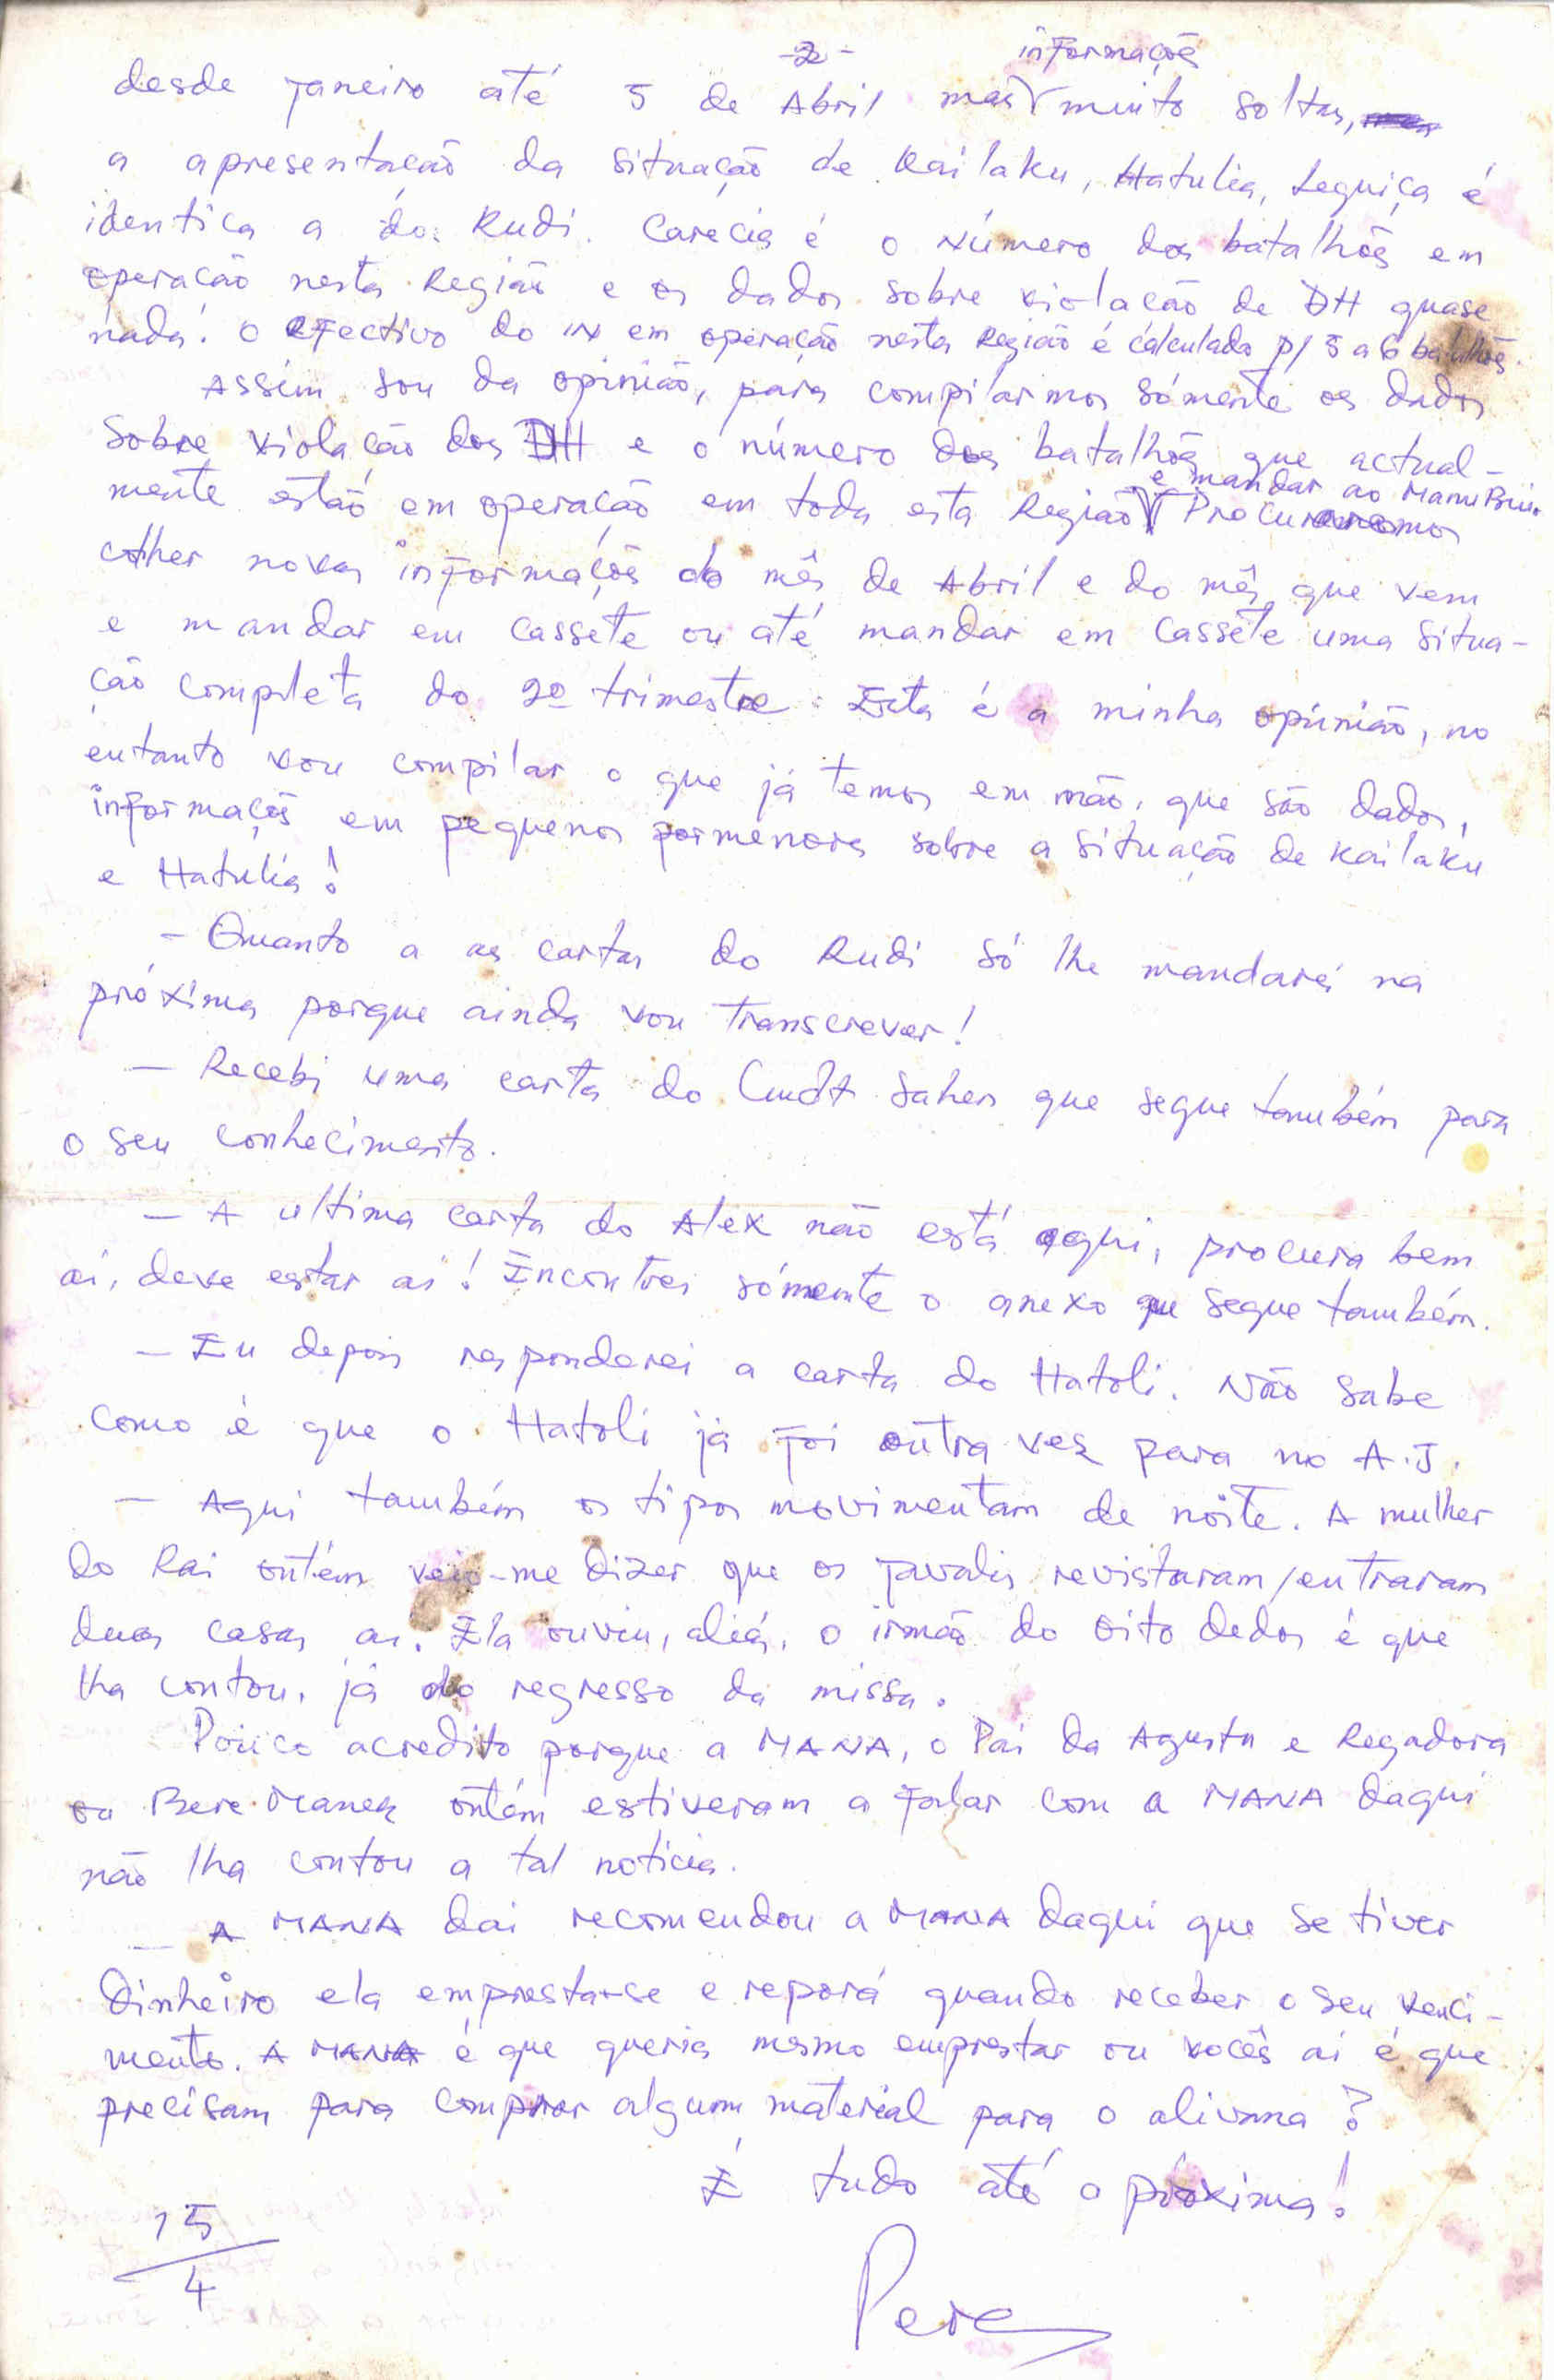 -2-
informações
desde janeiro até 5 de Abril mas muito soltas,
a apresentação da situação de Kailaku, Hatulia, Leguiça é
identica a do Rudi. Carecia é o Número dos batalhões em
operação nesta Região e os dados sobre violação de DH quase
nada! O efectivo do IN em operação nesta Região é cálculado p/ 5 a 6 batalhões.
Assim sou da opinião, para compilarmos sómente os dados
sobre violação dos DH e o número dos batalhões que actual-
e mandar ao Manu Brüs.
mente estão em operação em toda esta Região Procuraremos
colher novas informações do mês de Abril e do mês que vem
e mandar em cassete ou até mandar em cassete uma situa-
ção completa do 2º trimestre. Esta é a minha opinião, no
entanto vou compilar o que já temos em mão, que são dados,
informações em pequenos pormenores sobre a situação de Kailaku
e Hatulia!
- Quanto a as cartas do Rudi só lhe mandarei na
próxima porque ainda vou transcrever!
- Recebi uma carta do Cmdt Saher que segue também para
o seu conhecimento.
- A ultima carta do Alex não está aqui, procura bem
aí, deve estar aí! Encontrei sómente o anexo que segue também.
- Eu depois responderei a carta do Hatoli. Não sabe
como é que o Hatoli já foi outra vez para no A.J.
- Aqui também os tipos movimentam de noite. A mulher
do Rai ontém veio-me dizer que os javalis revistaram/entraram
duas casas aí. Ela ouviu, aliás, o irmão do oito dedos é que
lha contou, já do regresso da missa.
Pouco acredito porque a MANA, o Pai da Agusta e Regadora
ou Bere Manek ontém estiveram a falar com a MANA daqui
não lha contou a tal noticia.
- A MANA daí recomendou a MANA daqui que se tiver
dinheiro ela empresta-se e reporá quando receber o seu venci-
mento. A MANA é que queria mesmo emprestar ou vocês aí é que
precisam para comprar algum material para o alivana?
É tudo até a próxima!
15
4
Pere